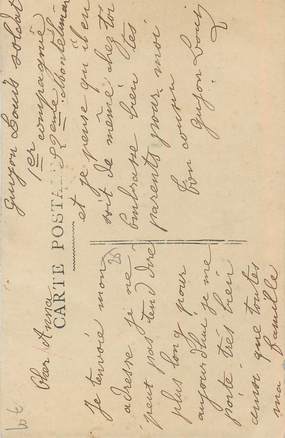 CARTE POSTALE
Cher Anna
Je t'envoie mon
adresse je ne
peut pas tend dire
plus long pour
aujourd'hui je me
porte très bien
ainsi que toutes
ma famille
et je pense qu'il en
soit de même chez toi
Embrasse bien tes
parents pour moi
ton cousin
Guyon Louis
Guyon Louis soldat
1er compagnie
52eme Montelimar